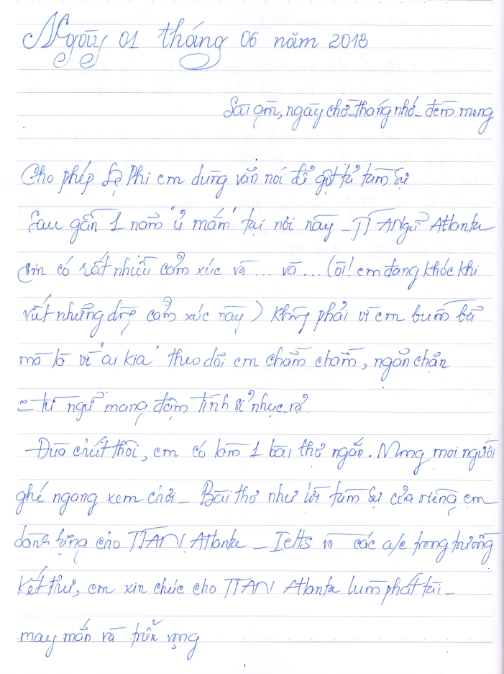 Ngày 01 tháng 06 năm 2018
Sài gòn, ngày chờ-tháng nhớ-đêm mong
Cho phép Lệ Phi em dùng văn nói để gợi tả tâm sự
Sau gần 1 năm "ủ mầm" tại nơi này - TTANgữ Atlanta
Em có rất nhiều cảm xúc và ... và ... (ôi! em đang khóc khi
viết những dòng cảm xúc này) không phải vì em buồn bã
mà là vì "ai kia" theo dõi em chầm chầm, ngăn chặn
- từ ngữ mang đậm tính sỉ nhục
- Đùa chút thôi, em có làm 1 bài thơ ngắn. Mong mọi người
ghé ngang xem chơi - Bài thơ như lời tâm sự của riêng em
dành tặng cho TTAN Atlanta - Ielts và các a/c trong trường
Kết thư, em xin chúc cho TTAN Atlanta luôn phát tài -
may mắn và triển vọng